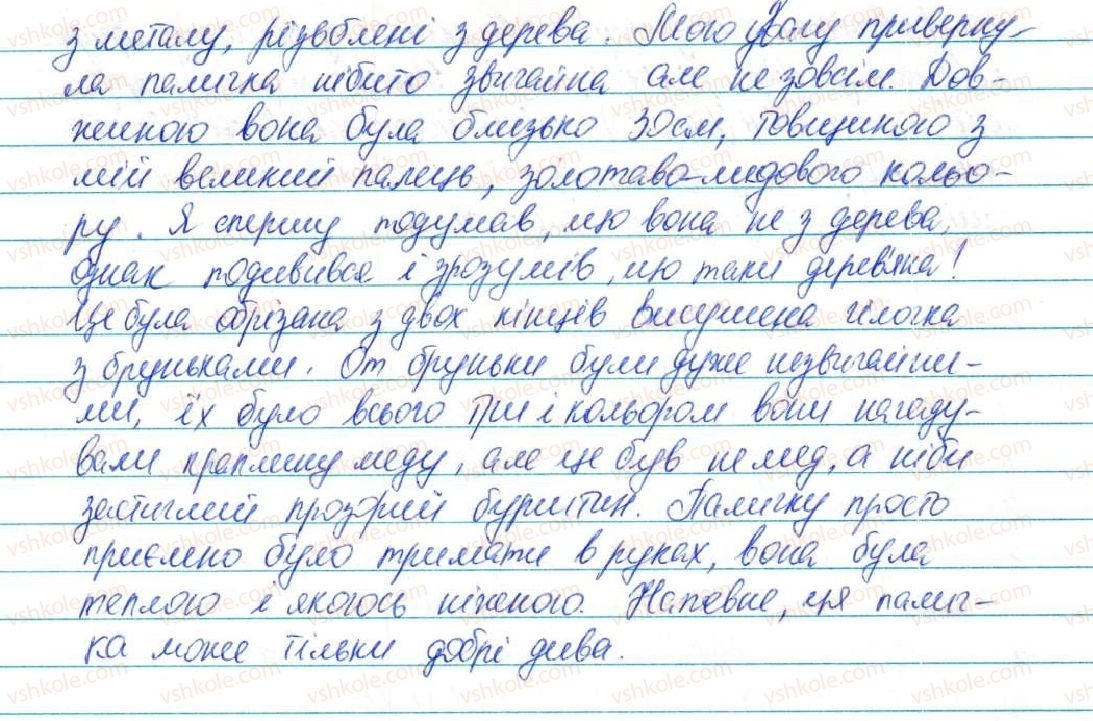 з металу, різьблені з дерева. Мою увагу приверну-
ла паличка нібито звичайна але не зовсім. Дов-
жиною вона була близько 30см, товщиною з
мій великий палець, золотаво-медового кольо-
ру. Я спершу подумав, що вона не з дерева,
однак подивився і зрозумів, що таки дерев'яна!
Це була обрізана з двох кінців висушена гілочка
з бруньками. От бруньки були дуже незвичайни-
ми, їх було всього три і кольором вони нагаду-
вали краплину меду, але це був не мед, а ніби
застиглий прозорий бурштин. Паличку просто
приємно було тримати в руках, вона була
теплою і якоюсь ніжною. Напевне, ця палич-
ка може тільки добрі дива.
vshkole.com